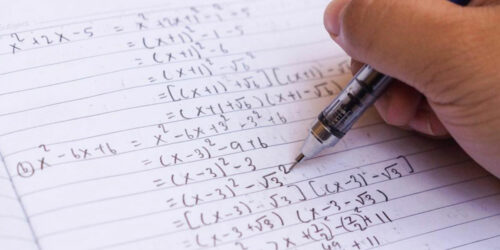 x² + 2x - 5 = x² + 2x + 1² - 1² - 5
= (x+1)² - 1 - 5
= (x+1)² - 6
= (x+1)² - √6²
= [(x+1) + √6] [(x+1) - √6]
= (x+1+√6)(x+1-√6)
b) x² - 6x + 6 = x² - 6x + 3² - 3² + 6
= (x-3)² - 9 + 6
= (x-3)² - 3
= (x-3)² - √3²
= [(x-3) - √3] [(x-3) - √3]
= (x-3+√3) (x-3-√3)
+ 11